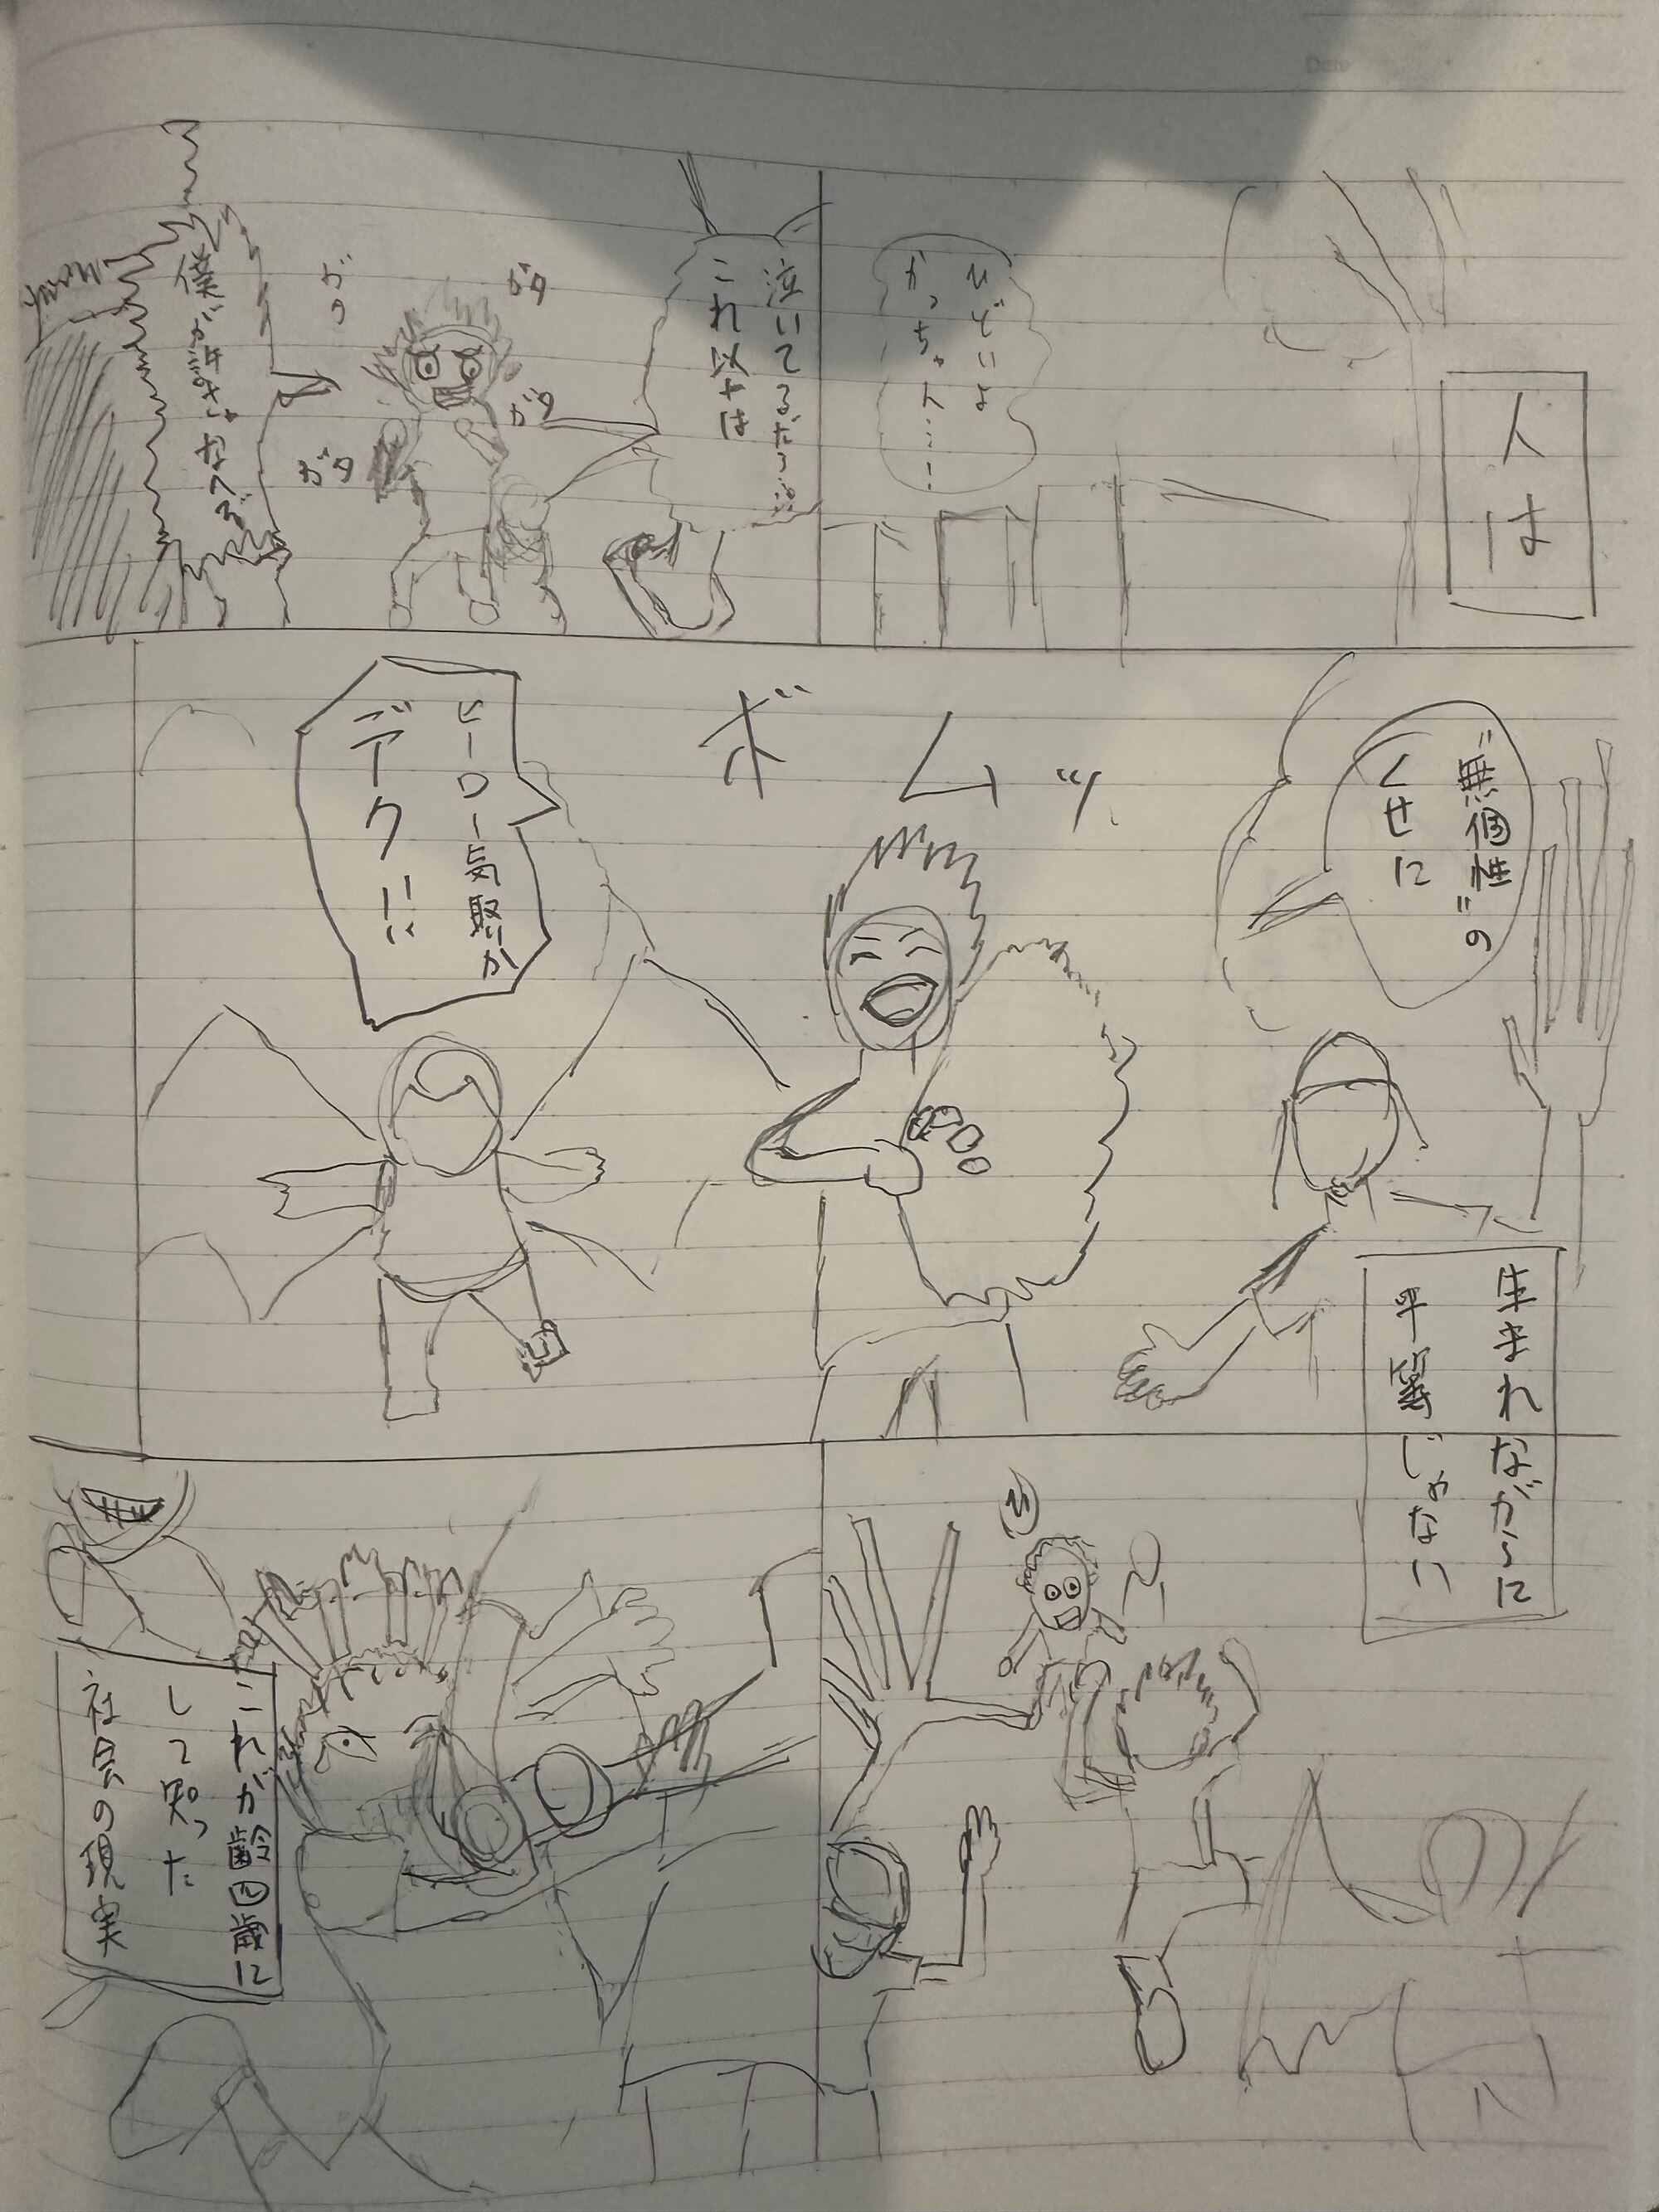 人は
ひどいよ
かっちゃん……!
泣いてるだろ……!!
これ以上は
ガタ
ガタ
ガタ
僕が許さなへぞ
"無個性"の
くせに
ボムッ
ヒーロー気取か
デク!!
生まれながらに
平等じゃない
ひ
これが齢四歳に
して知った
社会の現実